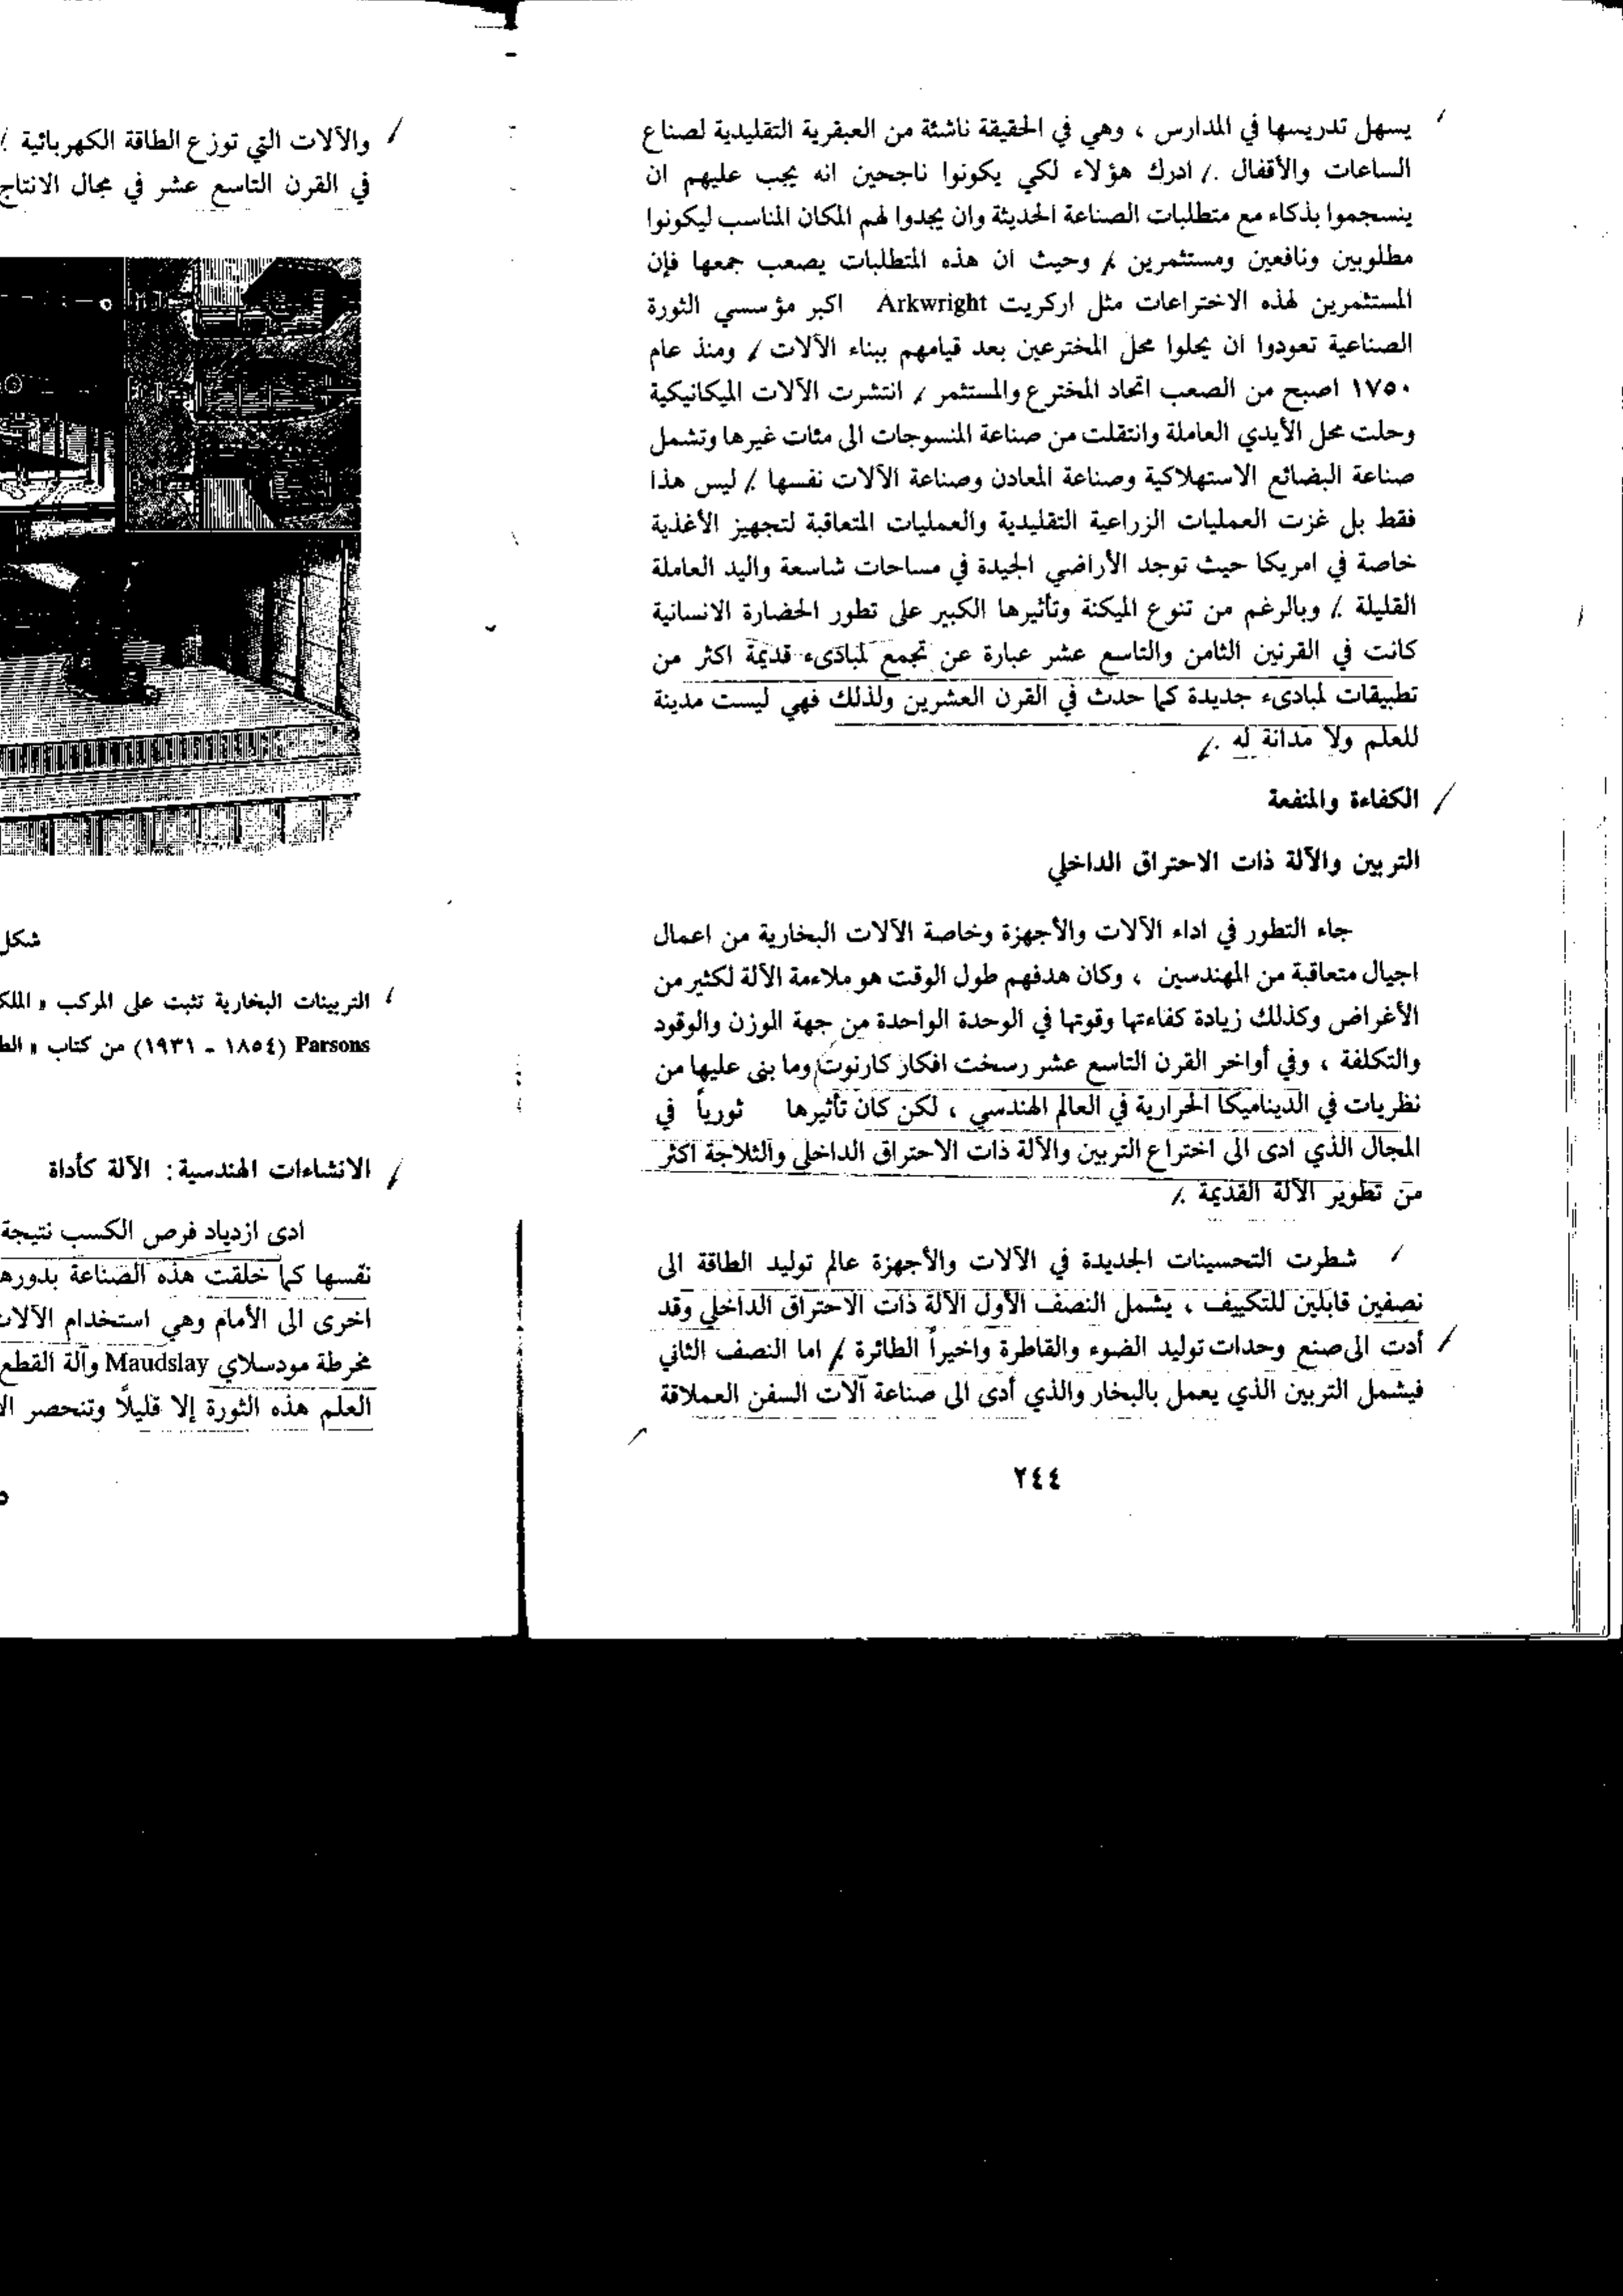 يسهل تدريسها في المدارس ، وهي في الحقيقة ناشئة من العبقرية التقليدية لصناع
الساعات والأقفال . ادرك هؤلاء لكي يكونوا ناجحين انه يجب عليهم ان
ينسجموا بذكاء مع متطلبات الصناعة الحديثة وان يجدوا لهم المكان المناسب ليكونوا
مطلوبين ونافعين ومستثمرين . وحيث ان هذه المتطلبات يصعب جمعها فإن
المستثمرين لهذه الاختراعات مثل اركريت Arkwright اكبر مؤسسي الثورة
الصناعية تعودوا ان يحلوا محل المخترعين بعد قيامهم ببناء الآلات . ومنذ عام
١٧٥٠ اصبح من الصعب اتحاد المخترع والمستثمر . انتشرت الآلات الميكانيكية
وحلت محل الأيدي العاملة وانتقلت من صناعة المنسوجات الى مئات غيرها وتشمل
صناعة البضائع الاستهلاكية وصناعة المعادن وصناعة الآلات نفسها . ليس هذا
فقط بل غزت العمليات الزراعية التقليدية والعمليات المتعاقبة لتجهيز الأغذية
خاصة في امريكا حيث توجد الأراضي الجيدة في مساحات شاسعة واليد العاملة
القليلة . وبالرغم من تنوع الميكنة وتأثيرها الكبير على تطور الحضارة الانسانية
كانت في القرنين الثامن والتاسع عشر عبارة عن تجمع لمبادىء قديمة اكثر من
تطبيقات لمبادىء جديدة كما حدث في القرن العشرين ولذلك فهي ليست مدينة
للعلم ولا مدانة له .
الكفاءة والمنفعة
التربين والآلة ذات الاحتراق الداخلي
جاء التطور في اداء الآلات والأجهزة وخاصة الآلات البخارية من اعمال
اجيال متعاقبة من المهندسين ، وكان هدفهم طول الوقت هو ملاءمة الآلة لكثير من
الأغراض وكذلك زيادة كفاءتها وقوتها في الوحدة الواحدة من جهة الوزن والوقود
والتكلفة ، وفي أواخر القرن التاسع عشر رسخت افكار كارنوت وما بنى عليها من
نظريات في الديناميكا الحرارية في العالم الهندسي ، لكن كان تأثيرها ثورياً في
المجال الذي ادى الى اختراع التربين والآلة ذات الاحتراق الداخلي والثلاجة اكثر
من تطوير الآلة القديمة .
شطرت التحسينات الجديدة في الآلات والأجهزة عالم توليد الطاقة الى
نصفين قابلين للتكييف ، يشمل النصف الأول الآلة ذات الاحتراق الداخلي وقد
أدت الى صنع وحدات توليد الضوء والقاطرة واخيراً الطائرة . اما النصف الثاني
فيشمل التربين الذي يعمل بالبخار والذي أدى الى صناعة آلات السفن العملاقة
٢٤٤
والآلات التي توزع الطاقة الكهربائية .
في القرن التاسع عشر في مجال الانتاج
شكل
التربينات البخارية تثبت على المركب «
Parsons (١٨٥٤ - ١٩٣١) من كتاب «
الانشاءات الهندسية : الآلة كأداة
ادى ازدياد فرص الكسب نتيجة
نفسها كما خلقت هذه الصناعة
اخرى الى الأمام وهي استخدام
مخرطة مودسلاي Maudslay وآلة القطع
العلم هذه الثورة إلا قليلاً وتنحصر